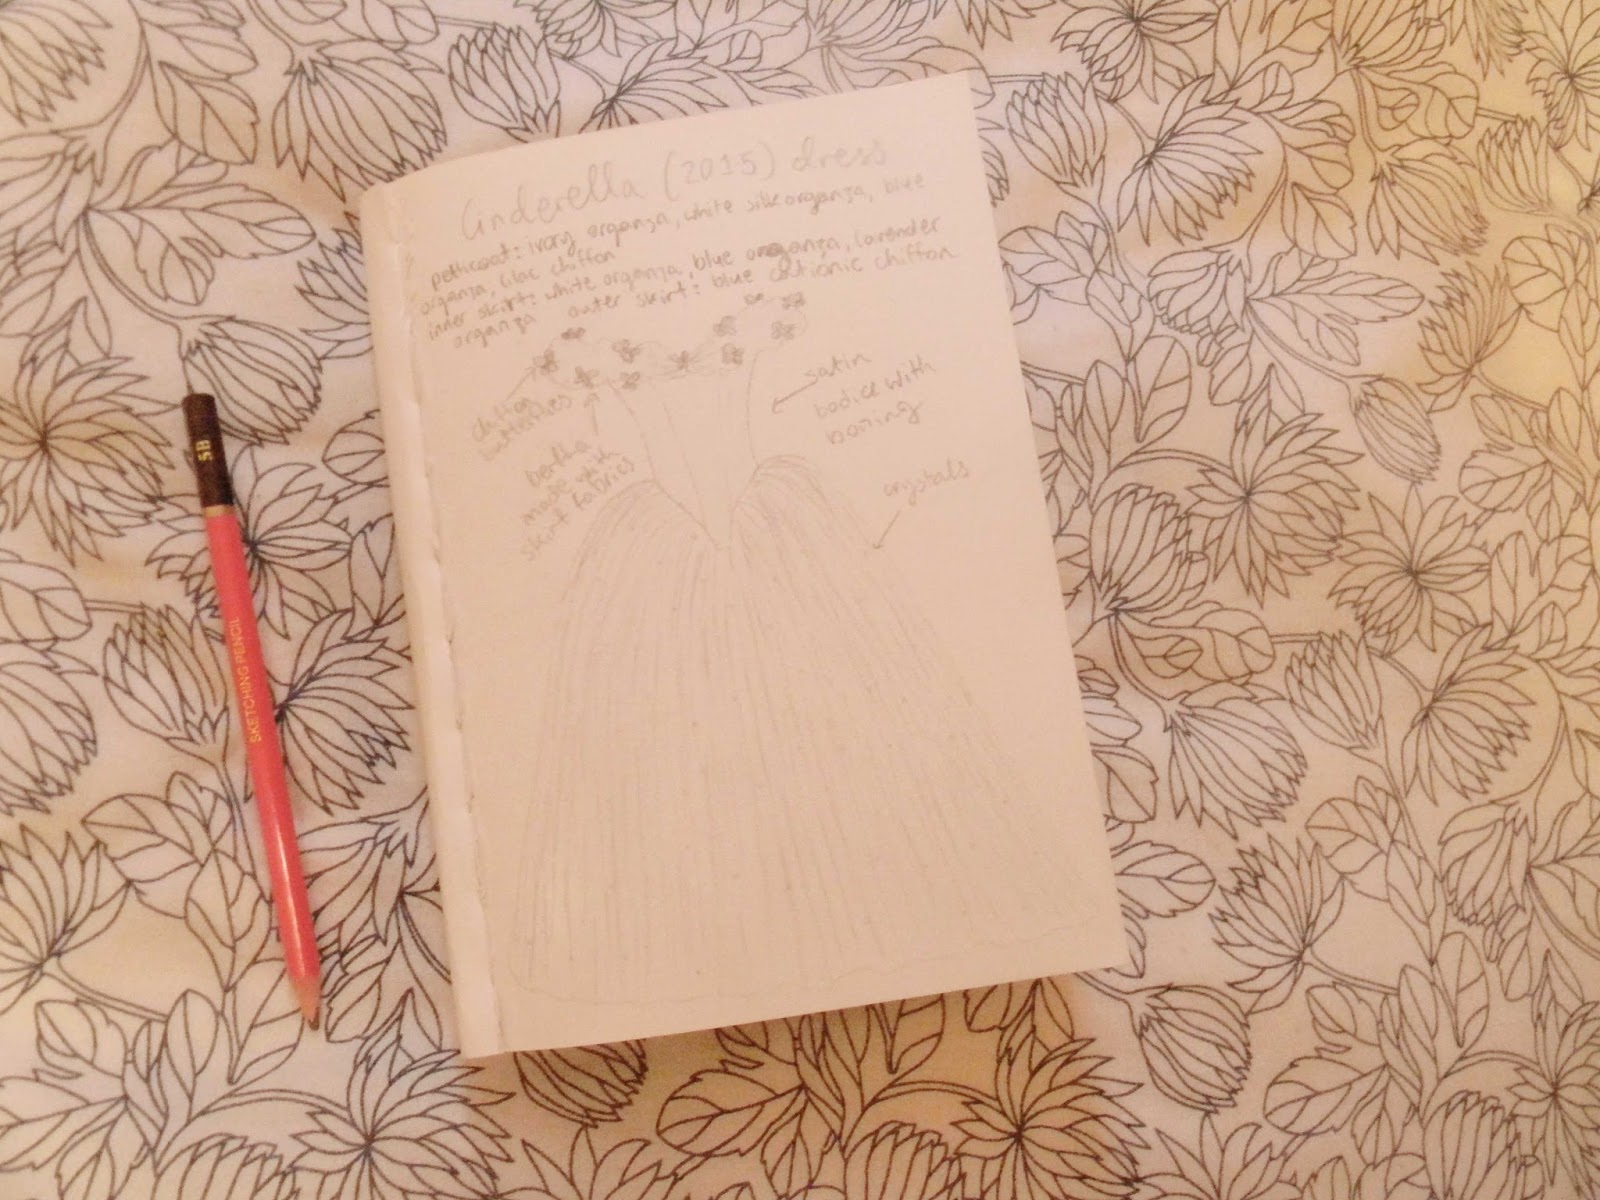 Cinderella (2015) dress
petticoat: ivory organza, white silk organza, blue
organza, lilac chiffon
inner skirt: white organza, blue organza, lavender
organza outer skirt: blue cationic chiffon
chiffon
butterflies
bertha
made with
skirt fabrics
satin
bodice with
boning
crystals
5B
SKETCHING PENCIL